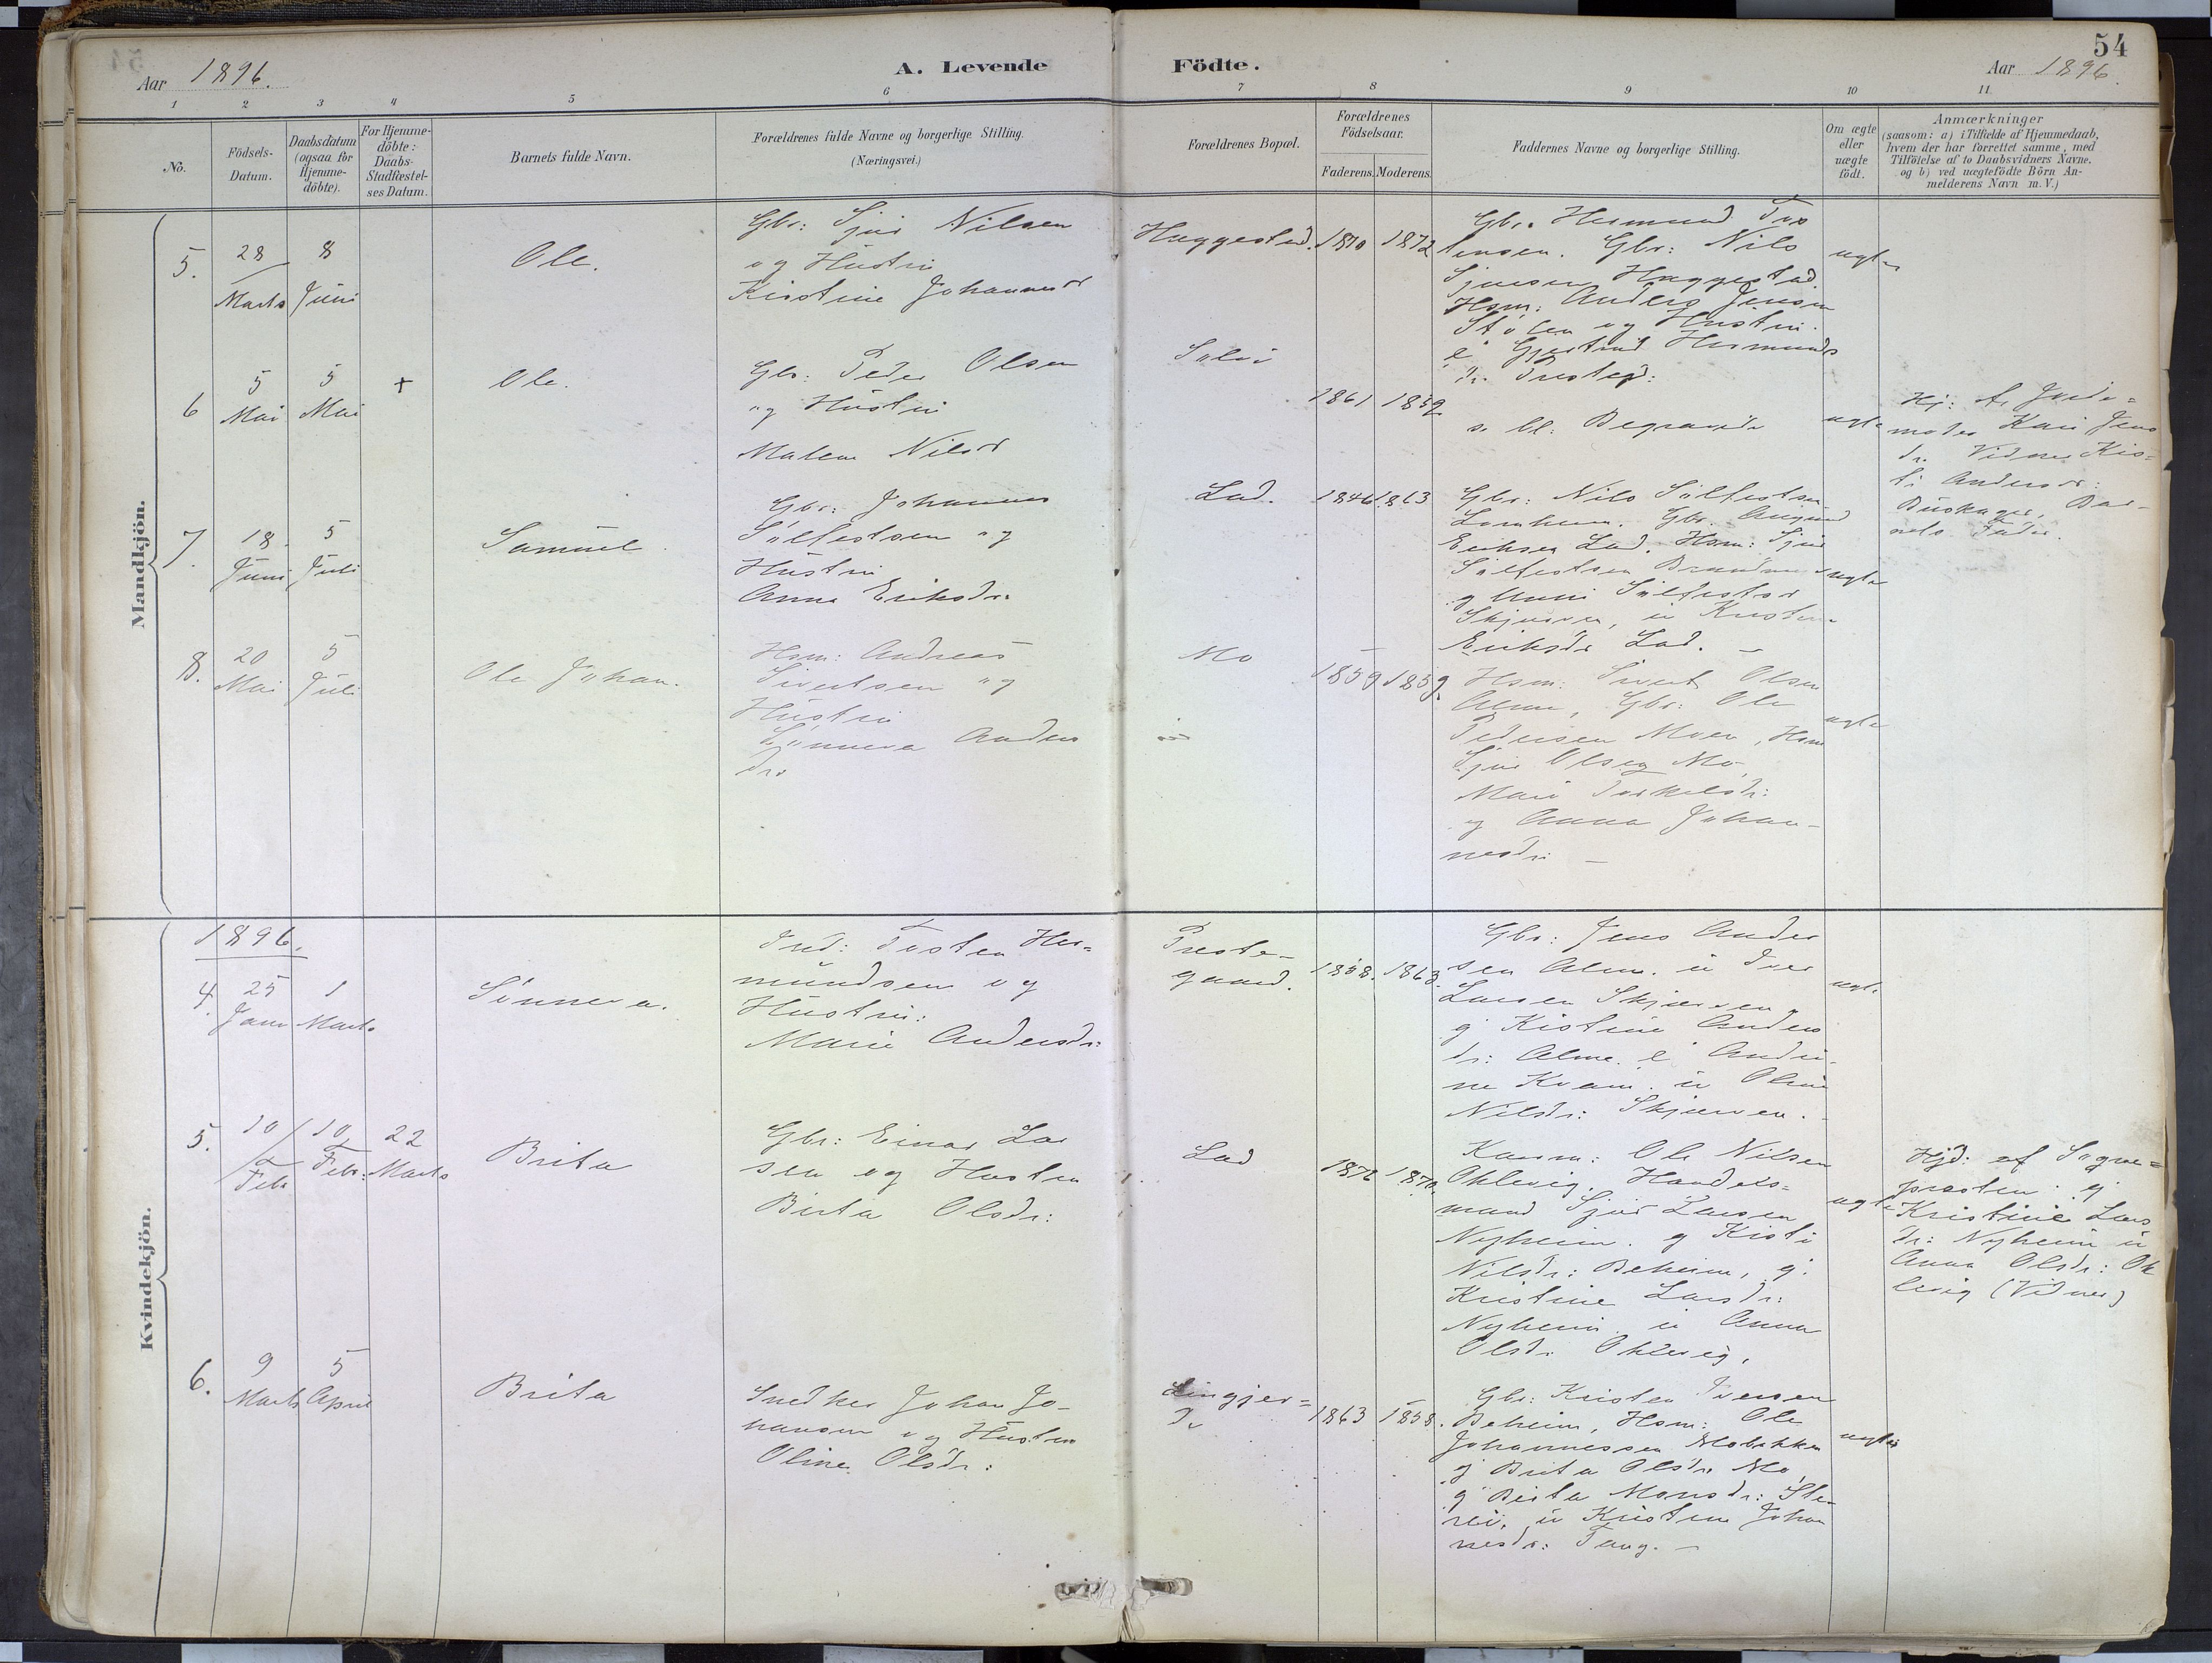 54
Aar 1896.
A. Levende Födte.
Aar 1896.
1 2 3 4 5 6 7 8 9 10 11
No.
Födsels-Datum.
Daabsdatum (ogsaa for Hjemme-döbte).
For Hjemme-döbte: Daabs-Stadfæstel-ses Datum.
Barnets fulde Navn.
Forældrenes fulde Navne og borgerlige Stilling.
(Næringsvei.)
Forældrenes Bopæl.
Forældrenes Födselsaar.
Faderens. Moderens.
Faddernes Navne og borgerlige Stilling.
Om ægte eller uægte födt.
Anmærkninger
(saasom: a) i Tilfælde af Hjemmedaab,
hvem der har forrettet samme, med
Tilföielse af to Daabsvidners Navne.
og b) ved uægtefödte Börn An-
melderens Navn m. V.)
Mandkjön.
5.
28 Marts
8 Juni
Ole.
Gbr: Sjur Nilsen
og Hustru
Kristine Johannesd
Haggestad.
1870 1872
Gbr. Hermund
Gbr: Nils
Sjursen Haggestad.
Hsm: Anders Jensen
og Hustru.
Hermunds
dr.
ægte
6
5 Mai
5 Mai
+
Ole.
Gbr: Peder Olsen
og Hustru
Malene Nilsd
1861 1859
ægte
Hj: Af Jorde=
moder Kari Jens
dr. Vidner Kis=
ti Andersdr:
Bar-
nets Fader.
7.
18. Juni
5 Juli
Samuel.
Gbr: Johannes
Sölfestsen og
Hustru
Anna Eriksdr.
Lad.
1846 1863
Gbr: Nils Sölfestsen
Gbr.
Eriksen Lad. Hsm: Sjur
Sölfestsen
g Anni Sölfestsd
Skjerven,
Eriksdr Lad. –
ægte
8.
20 Mai
5 Juli
Ole Johan.
Hsm: Andreas
Sivertsen og
Hustru
Sönneva Anders
dr.
Mo
1859 1859
Hsm: Sivert Olsen
Alme, Gbr: Ole
Pedersen Moen, Hsm
Sjur Olsen Mo,
Mari Torkelsdr:
og Anna Johan-
nesdr. –
ægte
Kvindekjön.
1896.
4.
25 Janr
1 Marts
Sönneva.
Ind: Tosten Her=
mundsen og
Hustru:
Marie Andersdr:
Preste-
gaard.
1858. 1863.
Gbr: Jens Ander
sen Alme. u Iver
Larsen Skjerven
g Kistine Anders
dr: Alme. e Andri-
ne Kvam. u Oline
Nilsdr: Skjerven. –
ægte
5.
10 Febr
10 Febr:
22 Marts
Brita
Gbr: Einar Lar
sen og Hustru
Birta Olsdr:
Lad
1872 1870.
Ole Nilsen
Oklevig. Handels=
mand Sjur Larsen
Nyheim. g Kisti
Nilsdr: Beheim, g.
Kristine Larsdr:
Nyheim u Anna
Olsdr Oklevig.
ægte
Hjd: af Sogne=
presten: g
Kristine Lars
dr: Nyheim u
Anna Olsdr: Ok
levig (Vidner)
6.
9 Marts
5 April
Brita
Snedker Johan Jo-
hansen og Hustru
Oline Olsdr:
Lingjer=
de
1863 1858.
Gbr: Kristen Iversen
Beheim, Hsm: Ole
Johannessen Mobekken
g Brita Olsdr Mo
g Birta Monsdr:
u Kristine Johan
nesdr: Tang. –
ægte